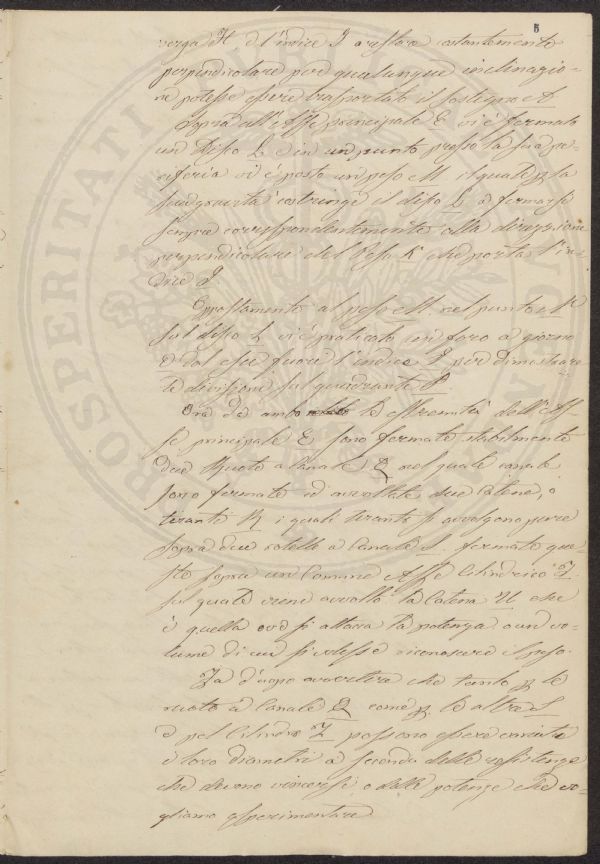 5
verga H, e l'indice I a restare costantemente
perpendicolare per qualunque inclinazio-
ne potesse essere trasportato il sostegno A
Sopra all'Asse principale E vi è fermato
un disco L e in un punto presso la sua pe-
riferia vi è posto un peso M il quale p la
sua gravità costringe il disco L a fermarsi
sempre corrispondentemente alla direzione
perpendicolare del Peso K che porta l'in-
dice I
Oppostamente al peso M. nel punto N
sul disco L vi è praticato un foro a giorno
e dal esce fuori l'indice per dimostrare
le divisioni sul quadrante P
Ora da ambo le estremità dell'As-
se principale E sono fermate stabilmente
due Ruote a Canale Q nel quale canale
sono fermate ed avvoltate due Catene, o
tiranti R i quali tiranti si avvolgono pure
sopra due rotelle a Canale S. fermate que-
ste sopra un Comune Asse Cilindrico T.
sul quale viene avvolto la Catena U che
è quella ove si attacca la potenza o un vo-
lume di cui si volesse riconoscere il peso.
Fa d'uopo avvertire che tanto p le
ruote a Canale Q come p le altre S
e pel Cilindro T possono essere
i loro diametri a seconda delle resistenze
che devono vincersi o delle potenze che vo-
gliamo esperimentare
PROSPERITATI PUBLICAE